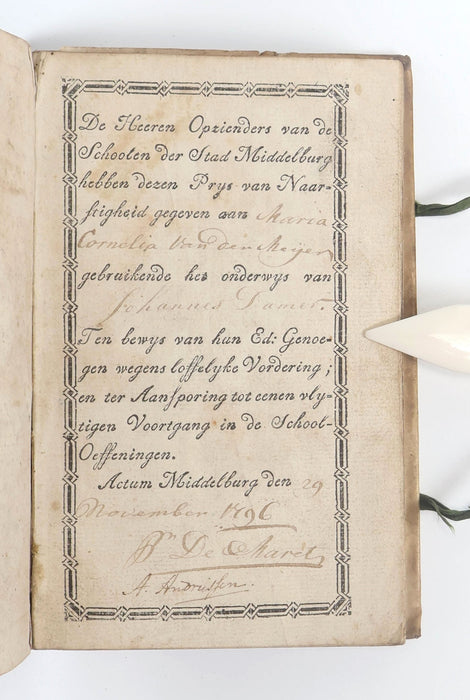 De Heeren Opzienders van de
Schoolen der Stad Middelburg
hebben dezen Prys van Naar-
stigheid gegeven aan Maria
Cornelia Van der Meijer
gebruikende het onderwys van
Johannes Damer.
Ten bewys van hun Ed: Genoe-
gen wegens loffelyke Vordering;
en ter Aansporing tot eenen vly-
tigen Voortgang in de School-
Oeffeningen.
Actum Middelburg den 29
November 1796
De Maret
A. Andriessen.